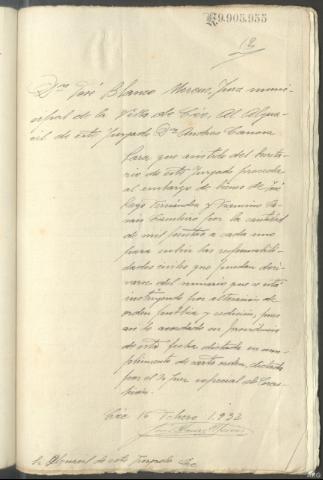 K9.905.955
12
Don José Blanco Moreno, Juez muni-
cipal de la Villa de Cée, Al Algua-
cil de este Juzgado Don Andres Canosa
Para que asistido del Secreta-
rio de este Juzgado proceda
al embargo de bienes de José
Rey Fernández y Francisco
por la cantidad
de mil pesetas a cada uno
para cubrir las responsabili-
dades civiles que puedan deri-
varse del sumario que se está
instruyendo por alteración de
orden publico y sedición, pues
así lo acordado en providencia
de esta fecha dictada en cum-
plimento de carta orden, dictada
por el Sr Juez especial de Corcu-
bión.
Cée 16 Febrero 1.932
José Blanco Moreno
Sr Alguacil de este Juzgado Cée